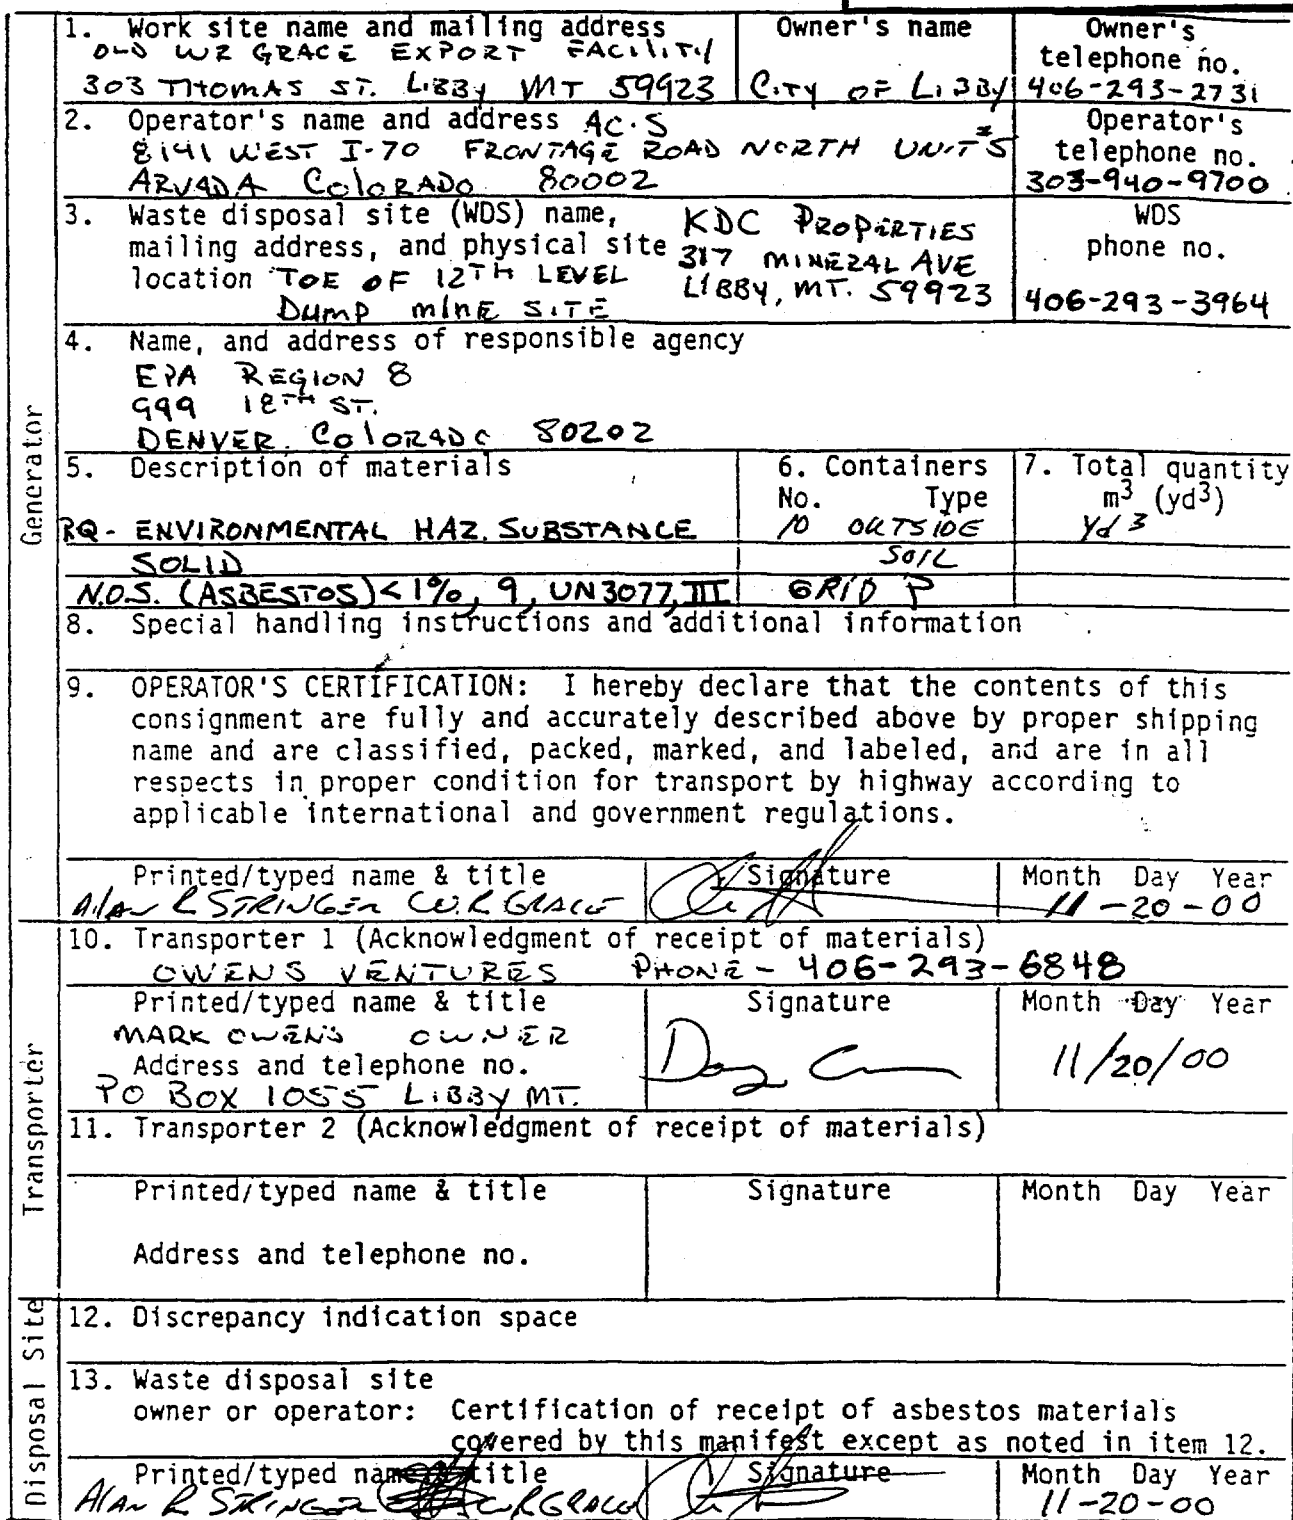 1. Work site name and mailing address
OLD WR GRACE EXPORT FACILITY
303 THOMAS ST. LIBBY MT 59923
Owner's name
CITY OF LIBBY
Owner's
telephone no.
406-293-2731
2. Operator's name and address AC.S
8141 WEST I-70 FRONTAGE ROAD NORTH UNIT #5
ARVADA COLORADO 80002
Operator's
telephone no.
303-940-9700
3. Waste disposal site (WDS) name,
mailing address, and physical site
location TOE OF 12TH LEVEL
DUMP MINE SITE
KDC PROPERTIES
317 MINERAL AVE
LIBBY, MT. 59923
WDS
phone no.
406-293-3964
4. Name, and address of responsible agency
EPA REGION 8
999 18TH ST.
DENVER, COLORADO 80202
Generator
5. Description of materials
6. Containers
No. Type
7. Total quantity
m3 (yd3)
RQ - ENVIRONMENTAL HAZ. SUBSTANCE
10 OUTSIDE
Yd 3
SOLID
SOIL
N.O.S. (ASBESTOS) <1%, 9, UN3077, III
GRID P
8. Special handling instructions and additional information
9. OPERATOR'S CERTIFICATION: I hereby declare that the contents of this
consignment are fully and accurately described above by proper shipping
name and are classified, packed, marked, and labeled, and are in all
respects in proper condition for transport by highway according to
applicable international and government regulations.
Printed/typed name & title
Alan R STRINGER W.R GRACE
Signature
Month Day Year
11-20-00
Transporter
10. Transporter 1 (Acknowledgment of receipt of materials)
OWENS VENTURES PHONE - 406-293-6848
Printed/typed name & title
MARK OWENS OWNER
Address and telephone no.
PO BOX 1055 LIBBY MT.
Signature
Month Day Year
11/20/00
11. Transporter 2 (Acknowledgment of receipt of materials)
Printed/typed name & title
Signature
Month Day Year
Address and telephone no.
Disposal Site
12. Discrepancy indication space
13. Waste disposal site
owner or operator: Certification of receipt of asbestos materials
covered by this manifest except as noted in item 12.
Printed/typed name & title
Alan R STRINGER WRGRACE
Signature
Month Day Year
11-20-00